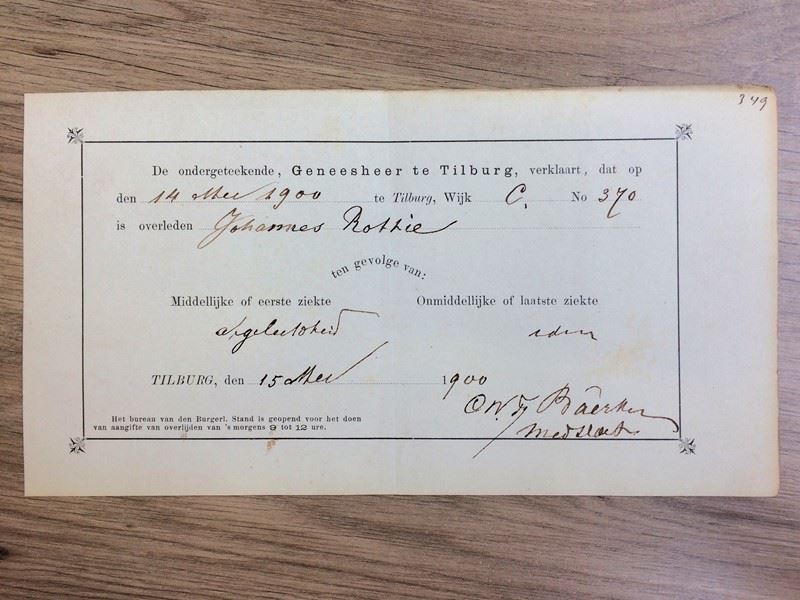 349
De ondergeteekende, Geneesheer te Tilburg, verklaart, dat op
den 14 Mei 1900 te Tilburg, Wijk C, No 370
is overleden Johannes Rottie
ten gevolge van:
Middellijke of eerste ziekte Onmiddelijke of laatste ziekte
Afgeleefdheid idem
TILBURG, den 15 Mei 1900
Het bureau van den Burgerl. Stand is geopend voor het doen
van aangifte van overlijden van 's morgens 9 tot 12 ure.